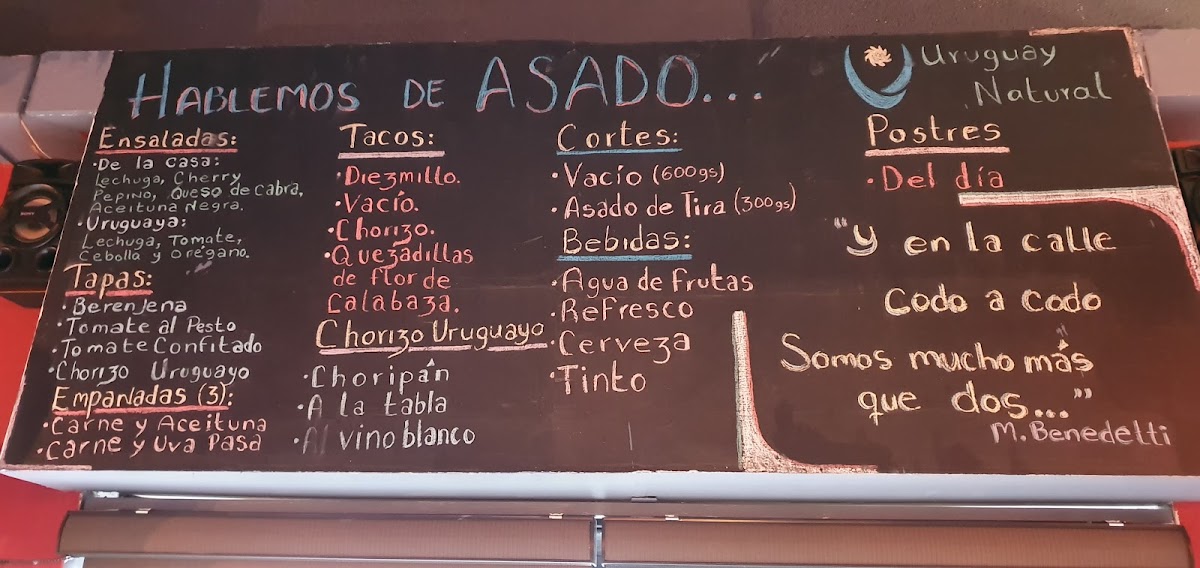 HABLEMOS DE ASADO...
Uruguay
Natural
Ensaladas:
·De la casa:
Lechuga, Cherry
Pepino, Queso de cabra,
Aceituna Negra.
·Uruguaya:
Lechuga, Tomate,
Cebolla y Orégano.
Tapas:
·Berenjena
·Tomate al Pesto
·Tomate Confitado
·Chorizo Uruguayo
Empanadas (3):
·Carne y Aceituna
·Carne y Uva Pasa
Tacos:
·Diezmillo.
·Vacío.
·Chorizo.
·Quezadillas
de flor de
calabaza.
Chorizo Uruguayo
·Choripán
·A la tabla
·Al vino blanco
Cortes:
·Vacío (600gs)
·Asado de Tira (300gs)
Bebidas:
·Agua de Frutas
·Refresco
·Cerveza
·Tinto
Postres
·Del día
"Y en la calle
Codo a Codo
Somos mucho más
que dos..."
M. Benedetti
SONY